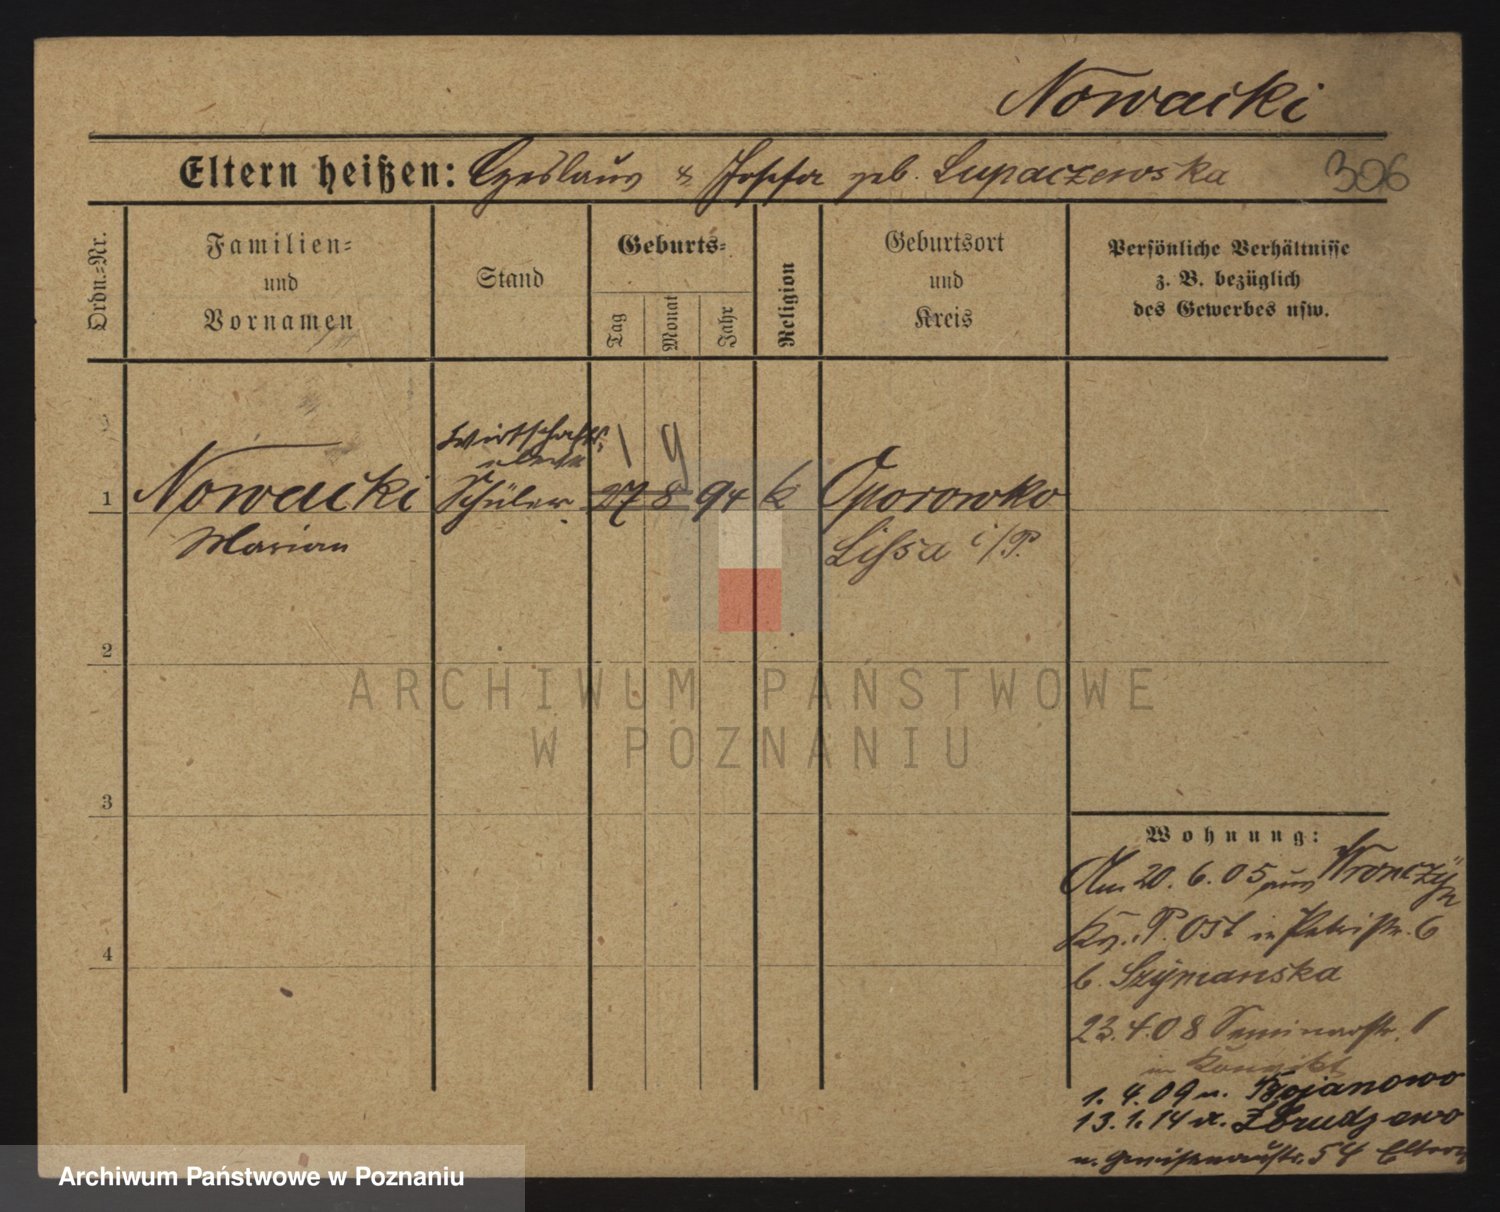 Nowacki
Eltern heißen: Czeslaus & Josefa geb. Lupaczewska 306
Ordn.=Nr.
Familien=
und
Vornamen
Stand
Geburts=
Tag
Monat
Jahr
Religion
Geburtsort
und
Kreis
Persönliche Verhältnisse
z. B. bezüglich
des Gewerbes usw.
Wirtschafts
eleve
1 9
1 Nowacki Schüler 27 8 94 k Oporowko
Marian Lissa i/P.
2
3
4
Wohnung:
Am 20. 6. 05 aus Wronczyn
Kr. P. Ost in Petristr. 6
b. Szymanska
23. 4. 08 Seminarstr. 1
im Konvikt
1. 4. 09 n. Bojanowo
13. 1. 14 a. Zbrudzewo
n. Gneisenaustr. 54 Eltern
ARCHIWUM PAŃSTWOWE
W POZNANIU
Archiwum Państwowe w Poznaniu